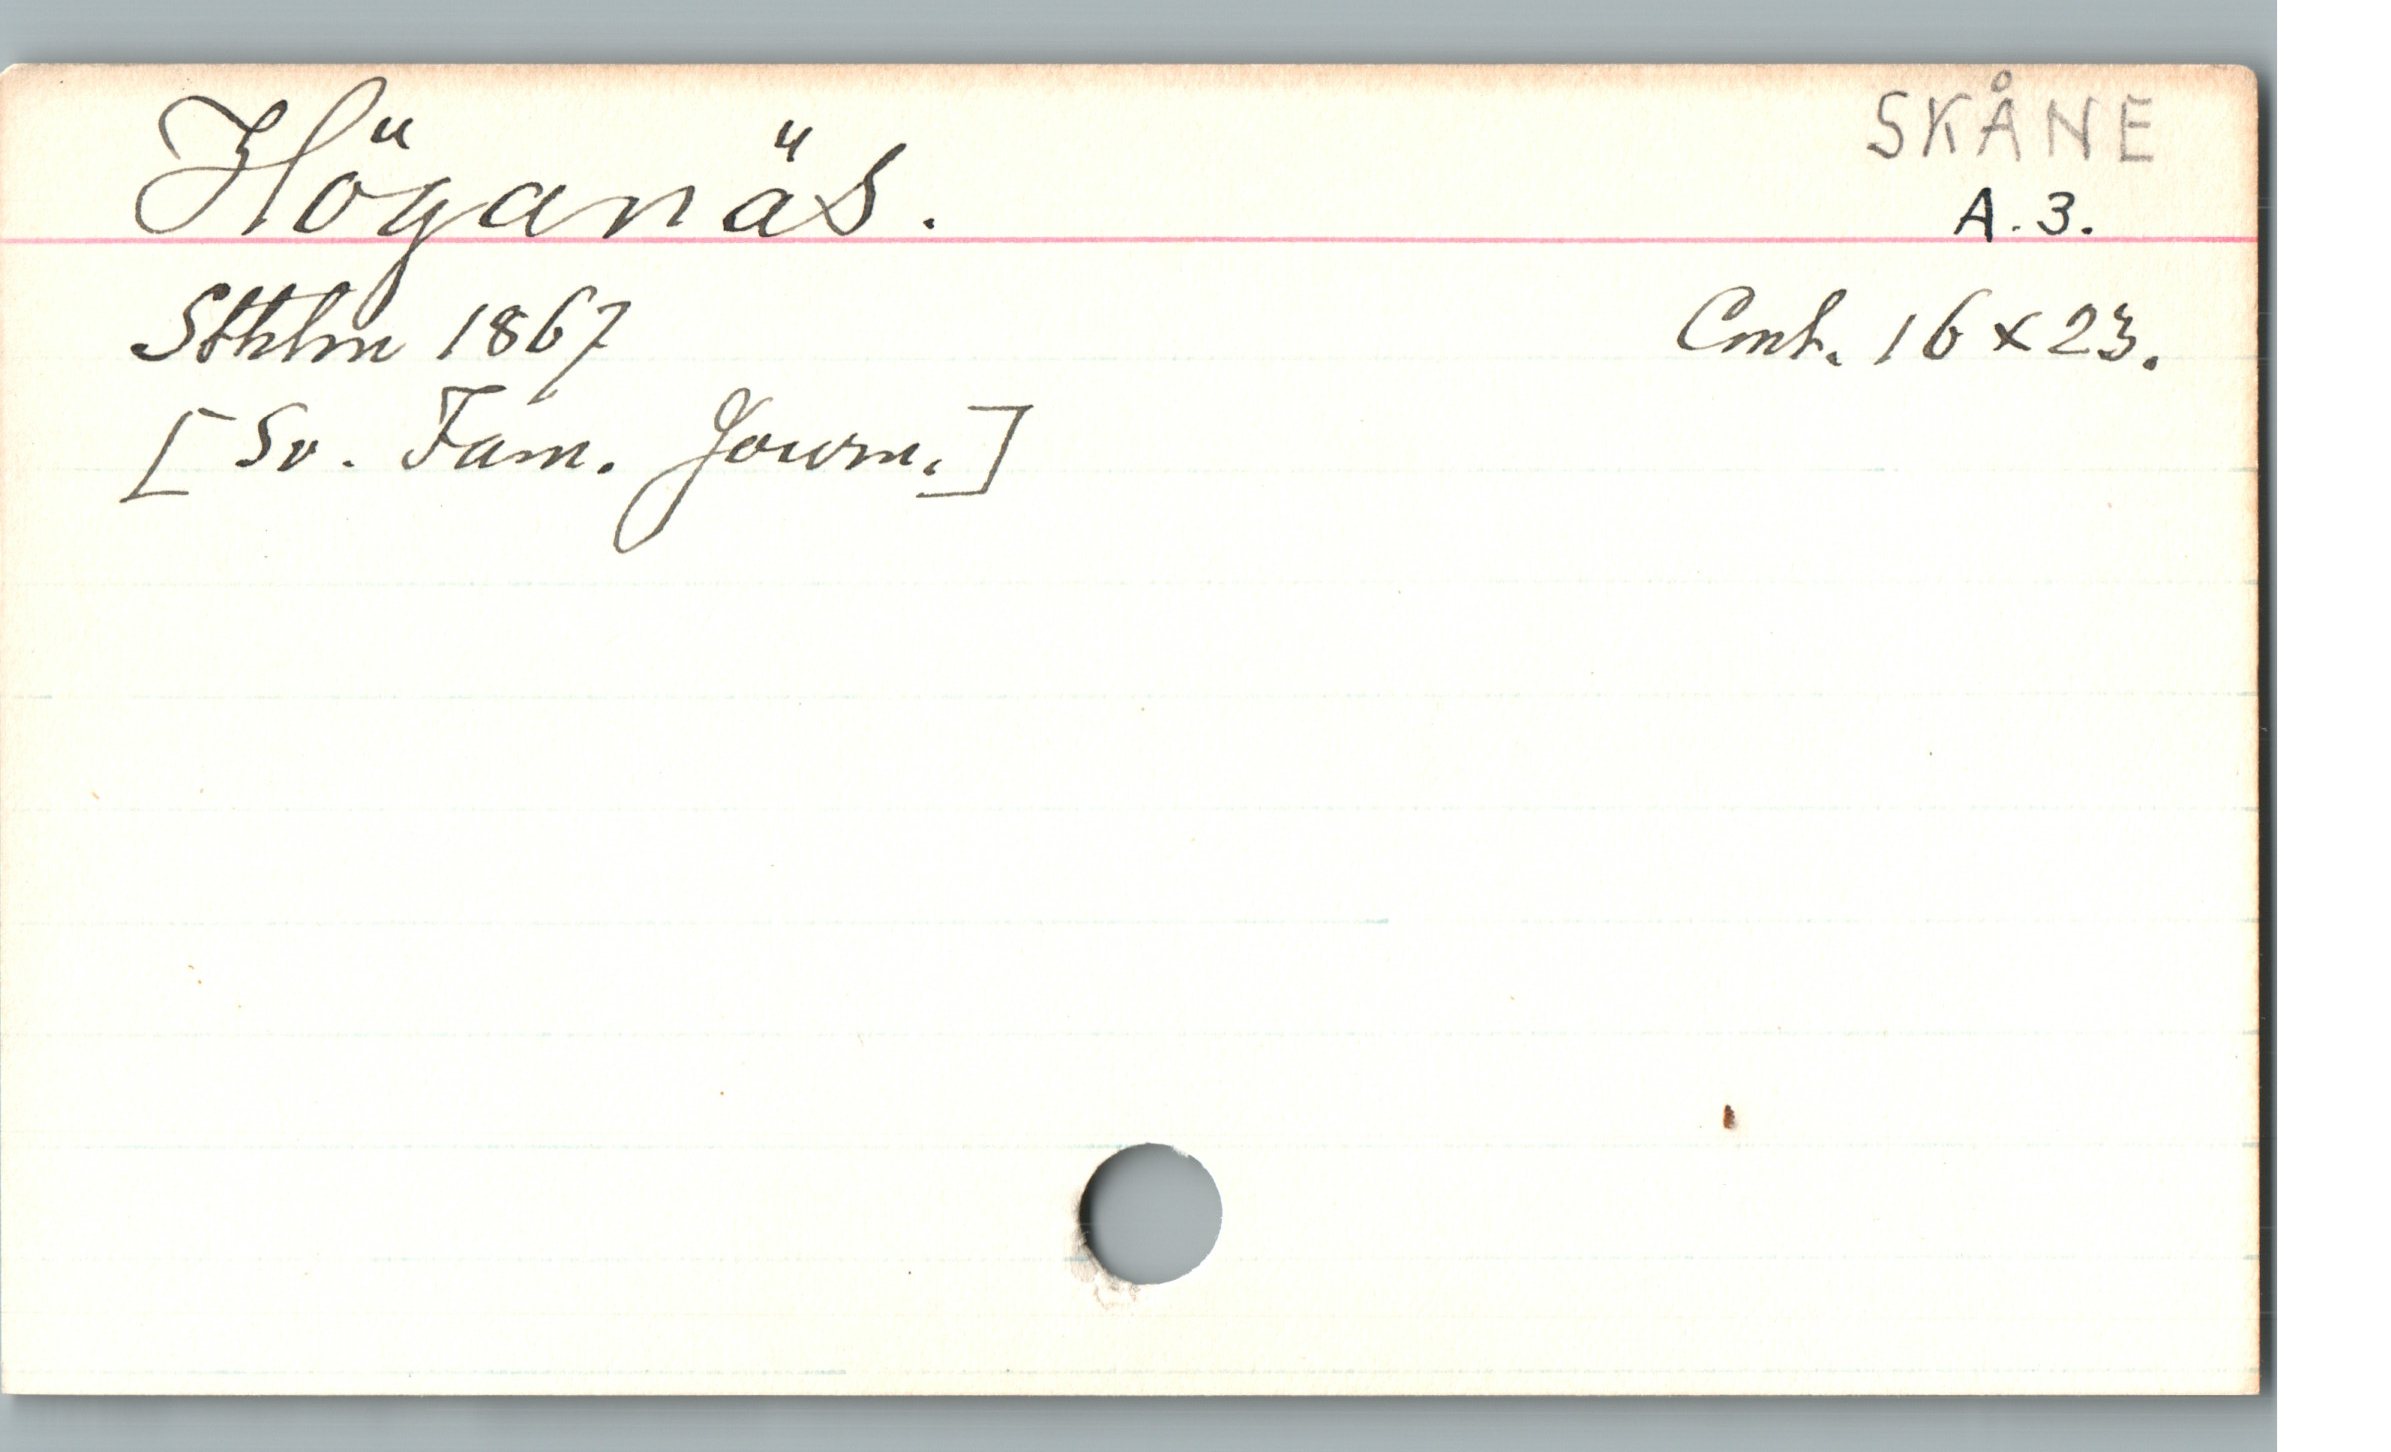 Höganäs.
SKÅNE
A.3.
Sthlm 1867
Cmt. 16 x 23.
[Sv. Fam. Journ.]